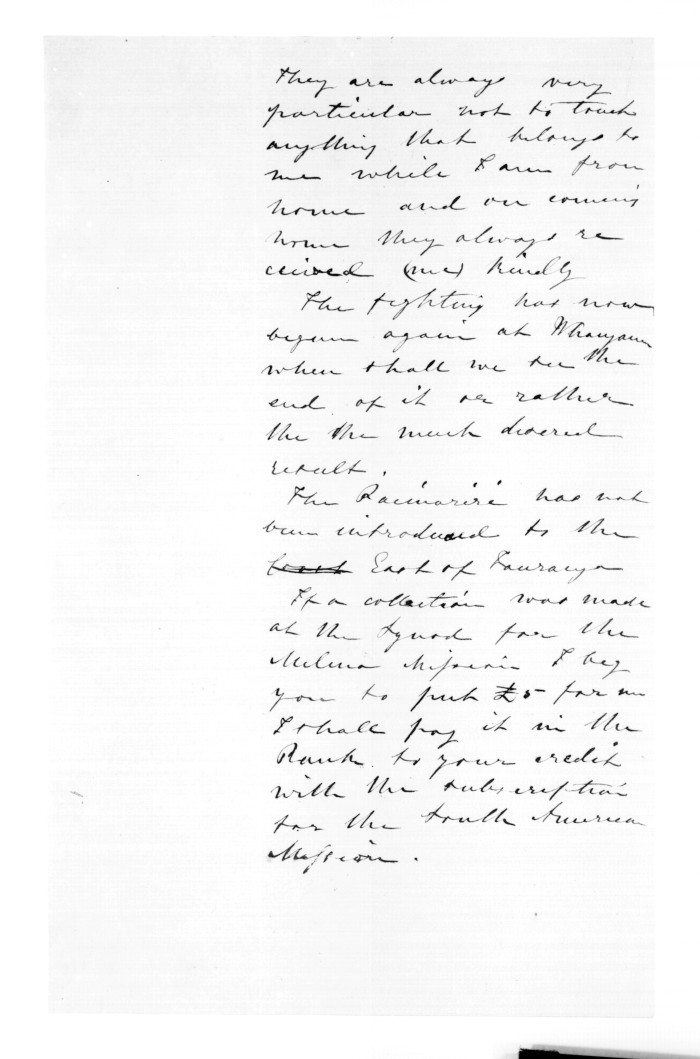 they are always very
particular not to touch
anything that belongs to
me while I am from
home and on coming
home they always re
ceived (me) kindly
The fighting has now
begun again at Whanganu
when shall we see the
end of it or rather
the the much desired
result.
The Paimarire has not
been introduced to the
East of Tauranga
If a collection was made
at the Synod for the
Melina Mission I beg
you to put £5 for me
I shall pay it in the
Bank to your credit
with the subscription
for the South American
Mission.